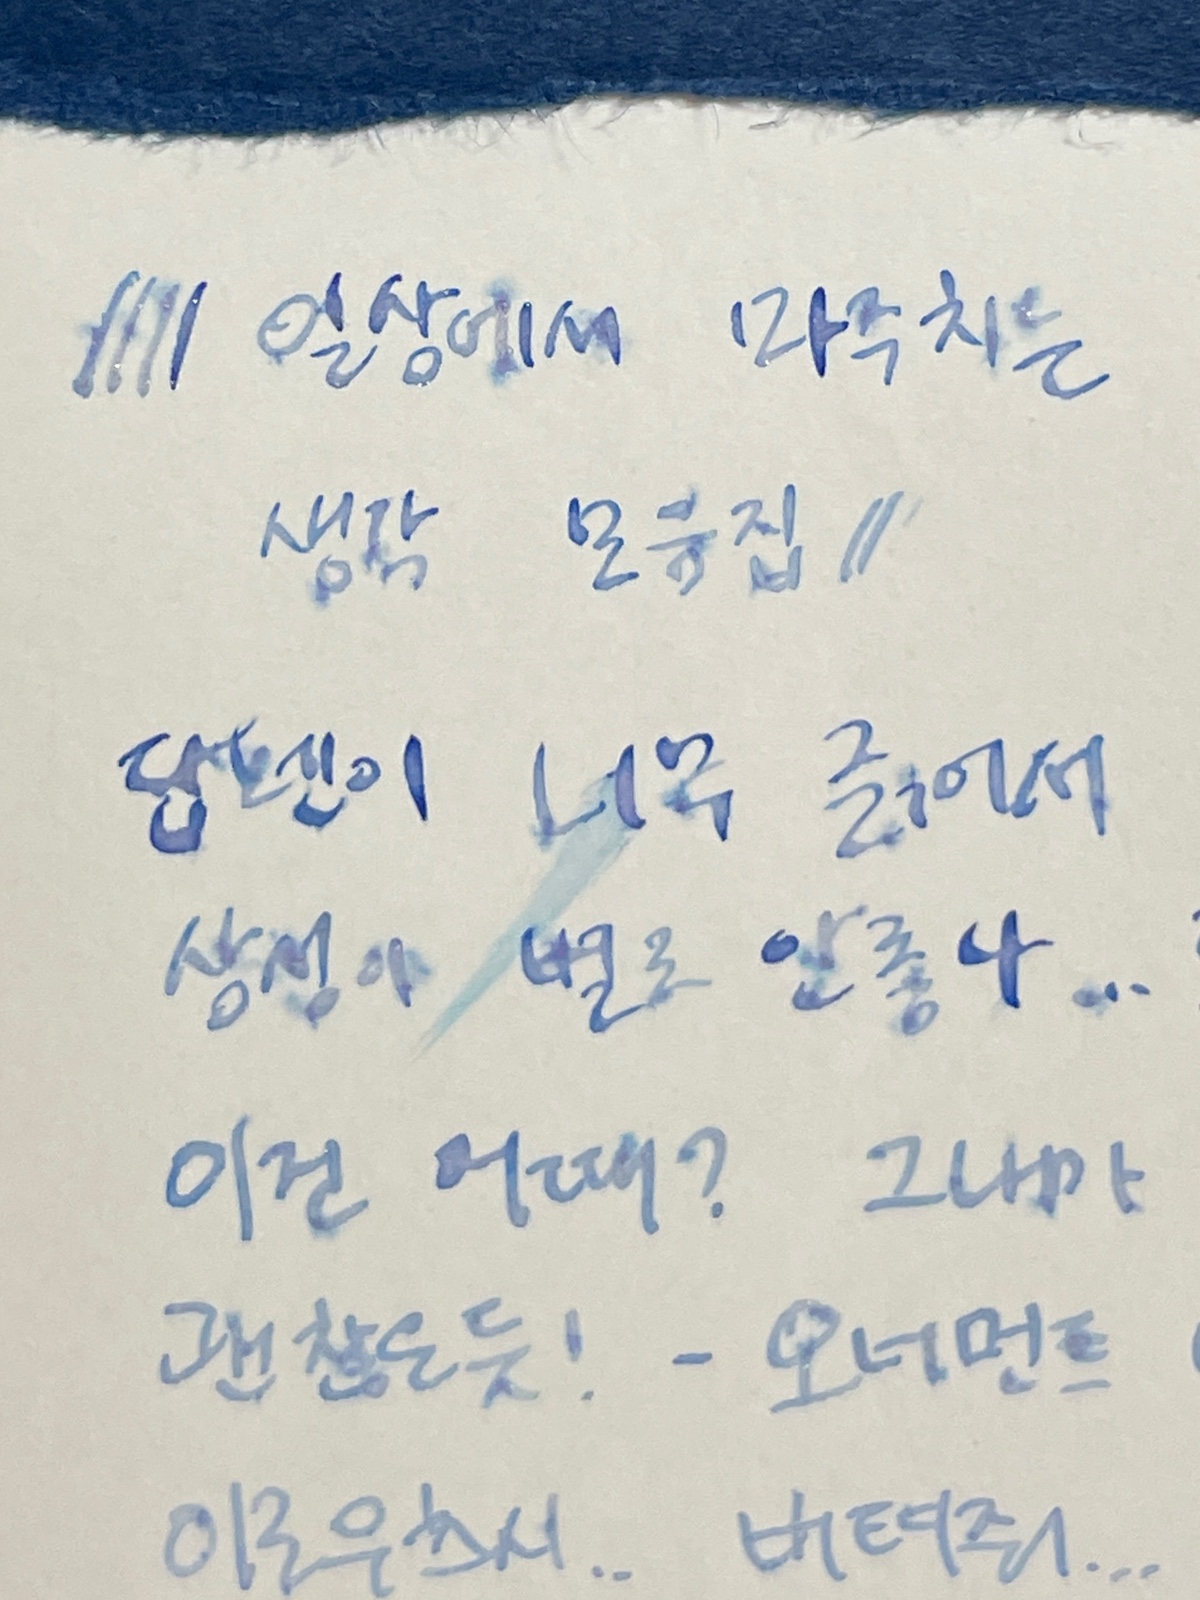 //// 일상에서 마주치는
생각 모음집 //
딥펜이 너무 굵어서
상성이 별로 안좋나...
이건 어때? 그나마
괜찮은듯! - 오너먼트
버텨줘...